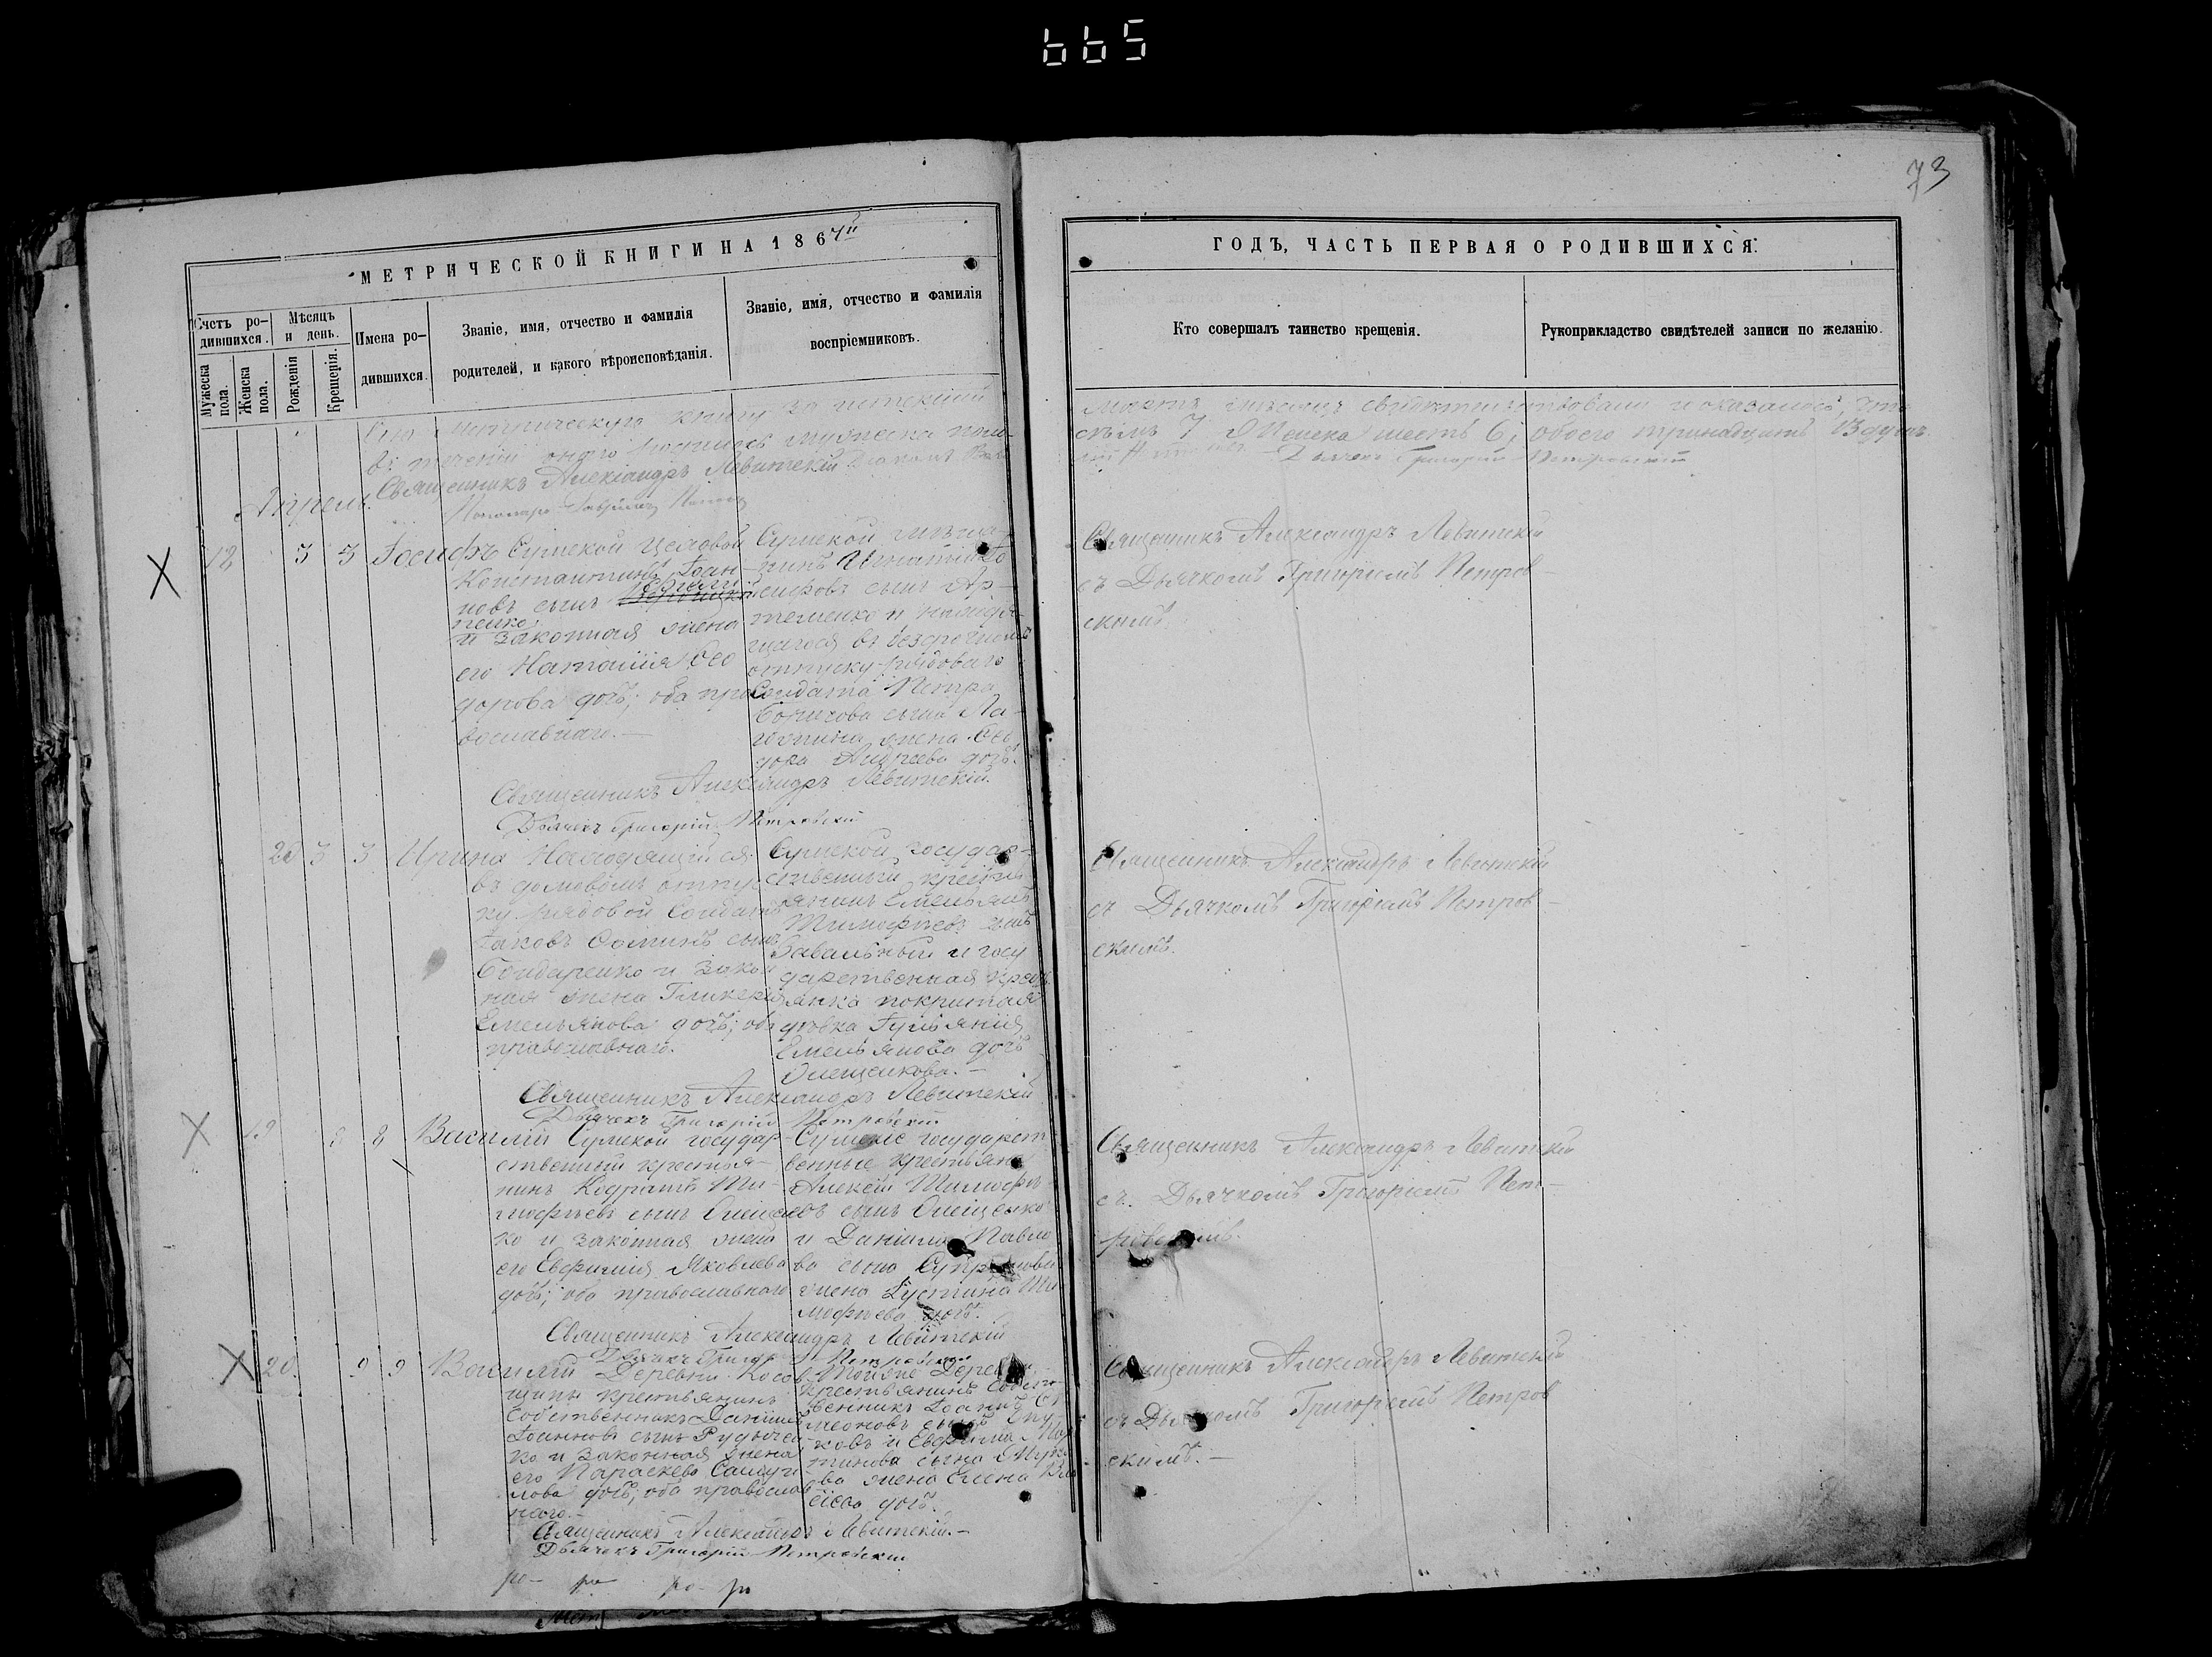 665
73
МЕТРИЧЕСКОЙ КНИГИ НА 1867й
ГОДЪ, ЧАСТЬ ПЕРВАЯ О РОДИВШИХСЯ.
Счетъ ро-
дившихся.
Мѣсяцъ
и день.
Мужеска
пола.
Женска
пола.
Рожденія
Крещенія.
Имена ро-
дившихся.
Званіе, имя, отчество и фамилія
родителей, и какого вѣроисповѣданія.
Званіе, имя, отчество и фамилія
воспріемниковъ.
Кто совершалъ таинство крещенія.
Рукоприкладство свидѣтелей записи по желанію.
Сію метрическую книгу за истекшій
мартъ мѣсяцъ свидѣтельствовали и оказалось, что
въ теченіи онаго родилось мужеска пола
седмь 7 Женска шесть 6, обоего тринадцать 13 душъ.
Священникъ Александръ Левитскій
Дьячекъ Григорій Петровскій
Апрель.
18 3 3 Іосифъ
Сумской цеховой
Константинъ Іоан-
новъ сынъ
пенко
и законная жена
его Наталія Ѳео
дорова дочь; оба пра
вославнаго.—
Сумской мѣща-
нинъ Игнатій Іо
сифовъ сынъ Ар-
теменко и находя-
щагося въ безсрочномъ
отпуску рядоваго
Солдата Петра
Борисова сына Ла-
жена Ѳео
дора Андреева дочь.
Священникъ Александръ Левитскій
съ Дьячкомъ Григоріемъ Петров-
скимъ.
Священникъ Александръ Левитскій.
Дьячекъ Григорій Петровскій
20 3 3 Ирина
Находящійся
въ домовомъ отпу-
ску рядовой Солдатъ
Іаковъ Ѳоминъ сынъ
Бондаренко и закон
ная жена Гликерія
Емельянова дочь; оба
православнаго.
Сумской государ-
ственный кресть
янинъ Емельянъ
Тимофѣевъ сынъ
Завальный и госу
дарственная кресть
янка покрытая
дѣвка Іуліянія
Емельянова дочь
Олещенкова.—
Священникъ Александръ Левитскій
съ Дьячкомъ Григоріемъ Петров-
скимъ.
Священникъ Александръ Левитскій
Дьячекъ Григорій Петровскій
19 8 8 Василій
Сумской государ-
ственный крестья-
нинъ Кодратъ Ти-
мофѣевъ сынъ Олещен
ко и законная жена
его Евфимія Яковлева
дочь; оба православнаго
Сумскіе государст
венные крестьяне
Алексій Тимофѣ-
евъ сынъ Олещенко
и Даніила Павло
ва сына Супрунова
жена Іустина Ти
мофѣева дочь.
Священникъ Александръ Левитскій
съ Дьячкомъ Григоріемъ Пет-
ровскимъ.
Священникъ Александръ Левитскій
Дьячекъ Григорій Петровскій
20. 9 9 Василій
Деревни Косов
щины крестьянинъ
Собственникъ Даніилъ
Іоанновъ сынъ Рудычен
ко и законная жена
его Параскева Самуи
лова дочь; оба православ
наго.—
Тойже Деревни
крестьянинъ Собст
венникъ Іоаннъ Си
меоновъ сынъ
ковъ и Евфима Мар
тинова сына
ва жена Елена Вла
сіева дочь.
Священникъ Александръ Левитскій
съ Дьячкомъ Григоріемъ Петров
скимъ.—
Священникъ Александръ Левитскій.—
Дьячекъ Григорій Петровскій
ро- ро ро- ро